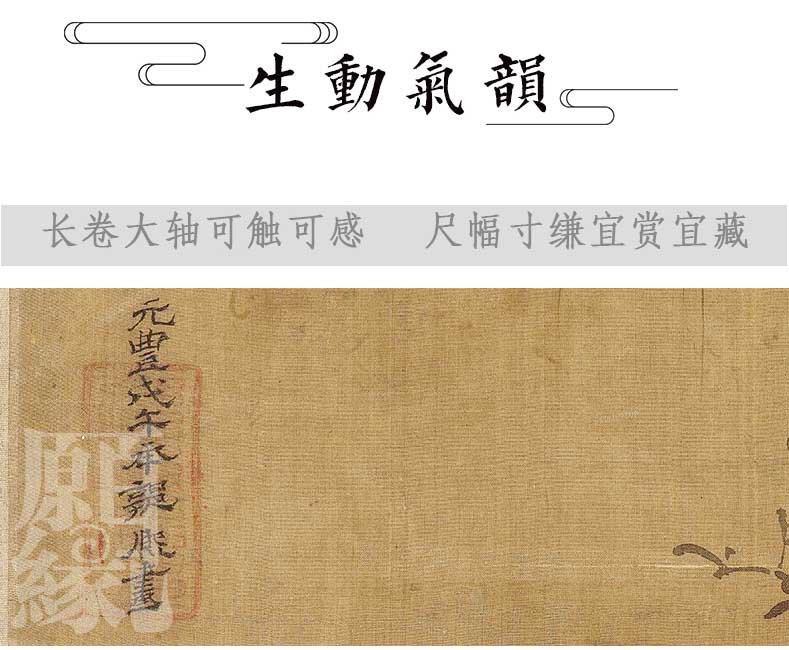 生動氣韻
长卷大轴可触可感 尺幅寸缣宜赏宜藏
元豐戊午年郭熙畫
願緣